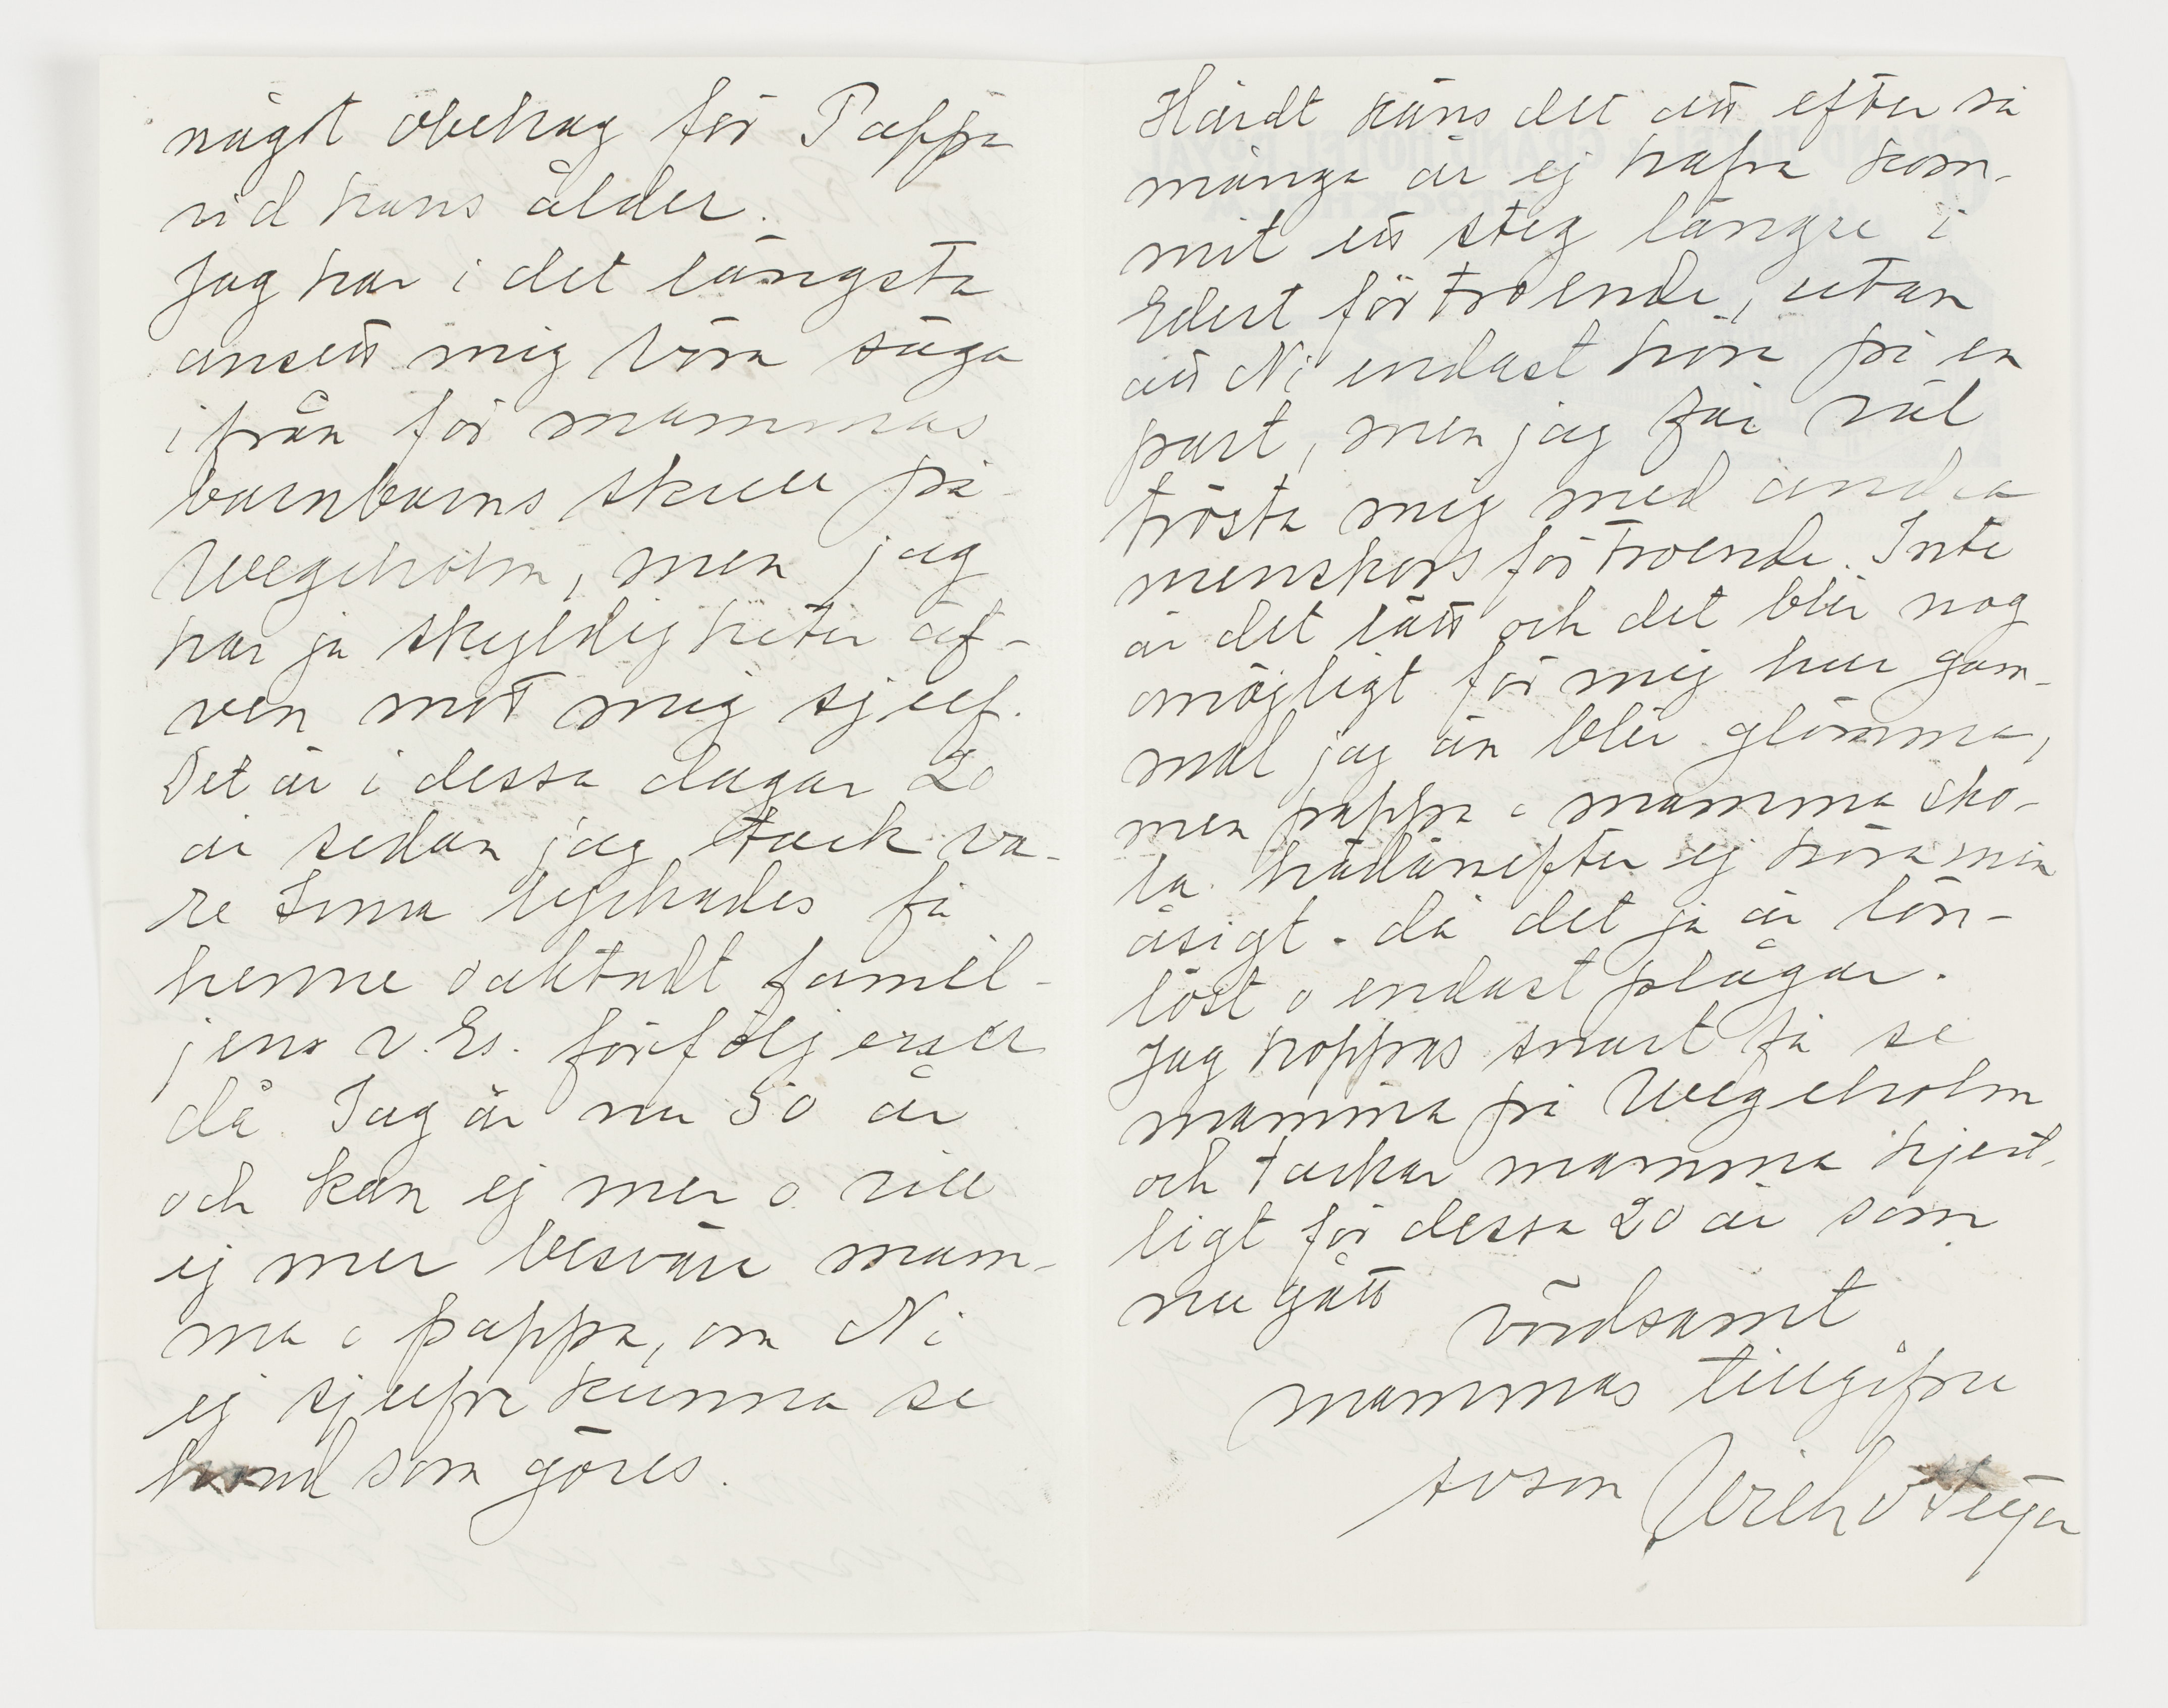 någst obehag för Pappa
vid hans ålder.
Jag har i det längsta
ansett mig böra säga
ifrån för mammas
barnbarns skull på
Wegeholm, men jag
har ja skyldigheter äf-
ven mot mig sjelf.
Det är i dessa dagar 20
år sedan jag tack va-
re Irma lyckades få
henne oaktadt famil-
jens v. Es. förföljelser
då. Jag är nu 50 år
och kan ej mer o vill
ej mer besvära mam-
ma o pappa, om Ni
ej sjelfva kunna se
hvad som göres.
Hårdt käns det att efter så
många år ej hafva kom-
mit ett steg längre i
Edert förtroende, utan
att Ni endast höra på en
part, men jag får väl
trösta mig med andra
menskors förtroende. Inte
är det lätt och det blir nog
omöjligt för mig hur gam-
mal jag än blir glömma,
men pappa o mamma sko-
la hädanefter ej höra min
åsigt. då det ja är lön-
löst o endast plågar.
Jag hoppas snart få se
mamma på Wegeholm
och tackar mamma hjert-
ligt för dessa 20 år som
nu gått
vördsamt
mammas tillgifne
svson